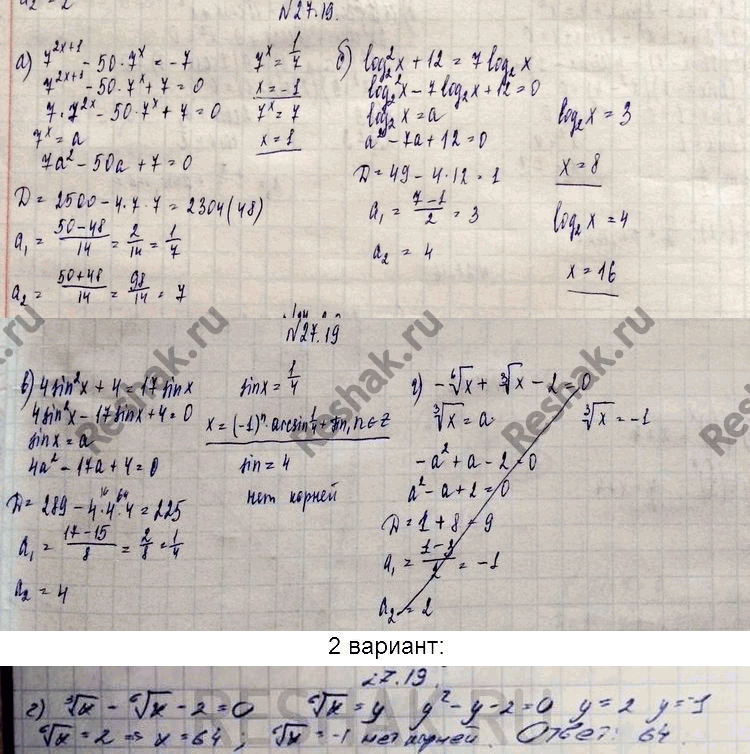 a₂ = 2
№27.19.
а) 7^(2x+1) - 50·7^x = -7
7^(2x+1) - 50·7^x + 7 = 0
7·7^(2x) - 50·7^x + 7 = 0
7^x = a
7a² - 50a + 7 = 0
D = 2500 - 4·7·7 = 2304 (48)
a₁ = (50-48)/14 = 2/14 = 1/7
a₂ = (50+48)/14 = 98/14 = 7
7^x = 1/7
x = -1
7^x = 7
x = 1
б) log₂²x + 12 = 7log₂x
log₂²x - 7log₂x + 12 = 0
log₂x = a
a² - 7a + 12 = 0
D = 49 - 4·12 = 1
a₁ = (7-1)/2 = 3
a₂ = 4
log₂x = 3
x = 8
log₂x = 4
x = 16
№27.19
в) 4sin²x + 4 = 17sinx
4sin²x - 17sinx + 4 = 0
sinx = a
4a² - 17a + 4 = 0
D = 289 - 4·4·4 = 225
16 64
a₁ = (17-15)/8 = 2/8 = 1/4
a₂ = 4
sinx = 1/4
x = (-1)ⁿ·arcsin 1/4 + πn, n∈Z
sin = 4
нет корней
г) -⁶√x + ³√x - 2 = 0
³√x = a
-a² + a - 2 = 0
a² - a + 2 = 0
D = 1 + 8 = 9
a₁ = (1-3)/2 = -1
a₂ = 2
³√x = -1
Reshak.ru
Reshak.ru
Reshak.ru
Reshak.ru
2 вариант:
27.19.
г) ³√x - ⁶√x - 2 = 0 ⁶√x = y y² - y - 2 = 0 y = 2 y = -1
⁶√x = 2 ⇒ x = 64; ⁶√x = -1 нет корней. Ответ: 64.
RESHAK.RU